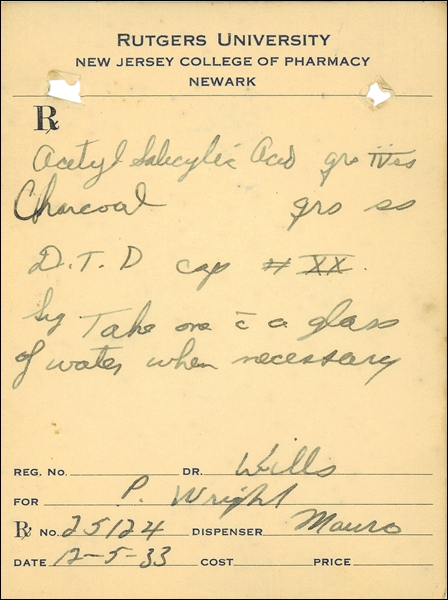 RUTGERS UNIVERSITY
NEW JERSEY COLLEGE OF PHARMACY
NEWARK
℞
Acetyl Salicylic Acid grs īv̄ss
Charcoal grs ss
D.T.D cap # XX.
Sig Take one c̄ a glass
of water when necessary
REG. NO. DR. Wills
FOR P. Wright
℞ NO. 25124 DISPENSER Mauro
DATE 12-5-33 COST PRICE